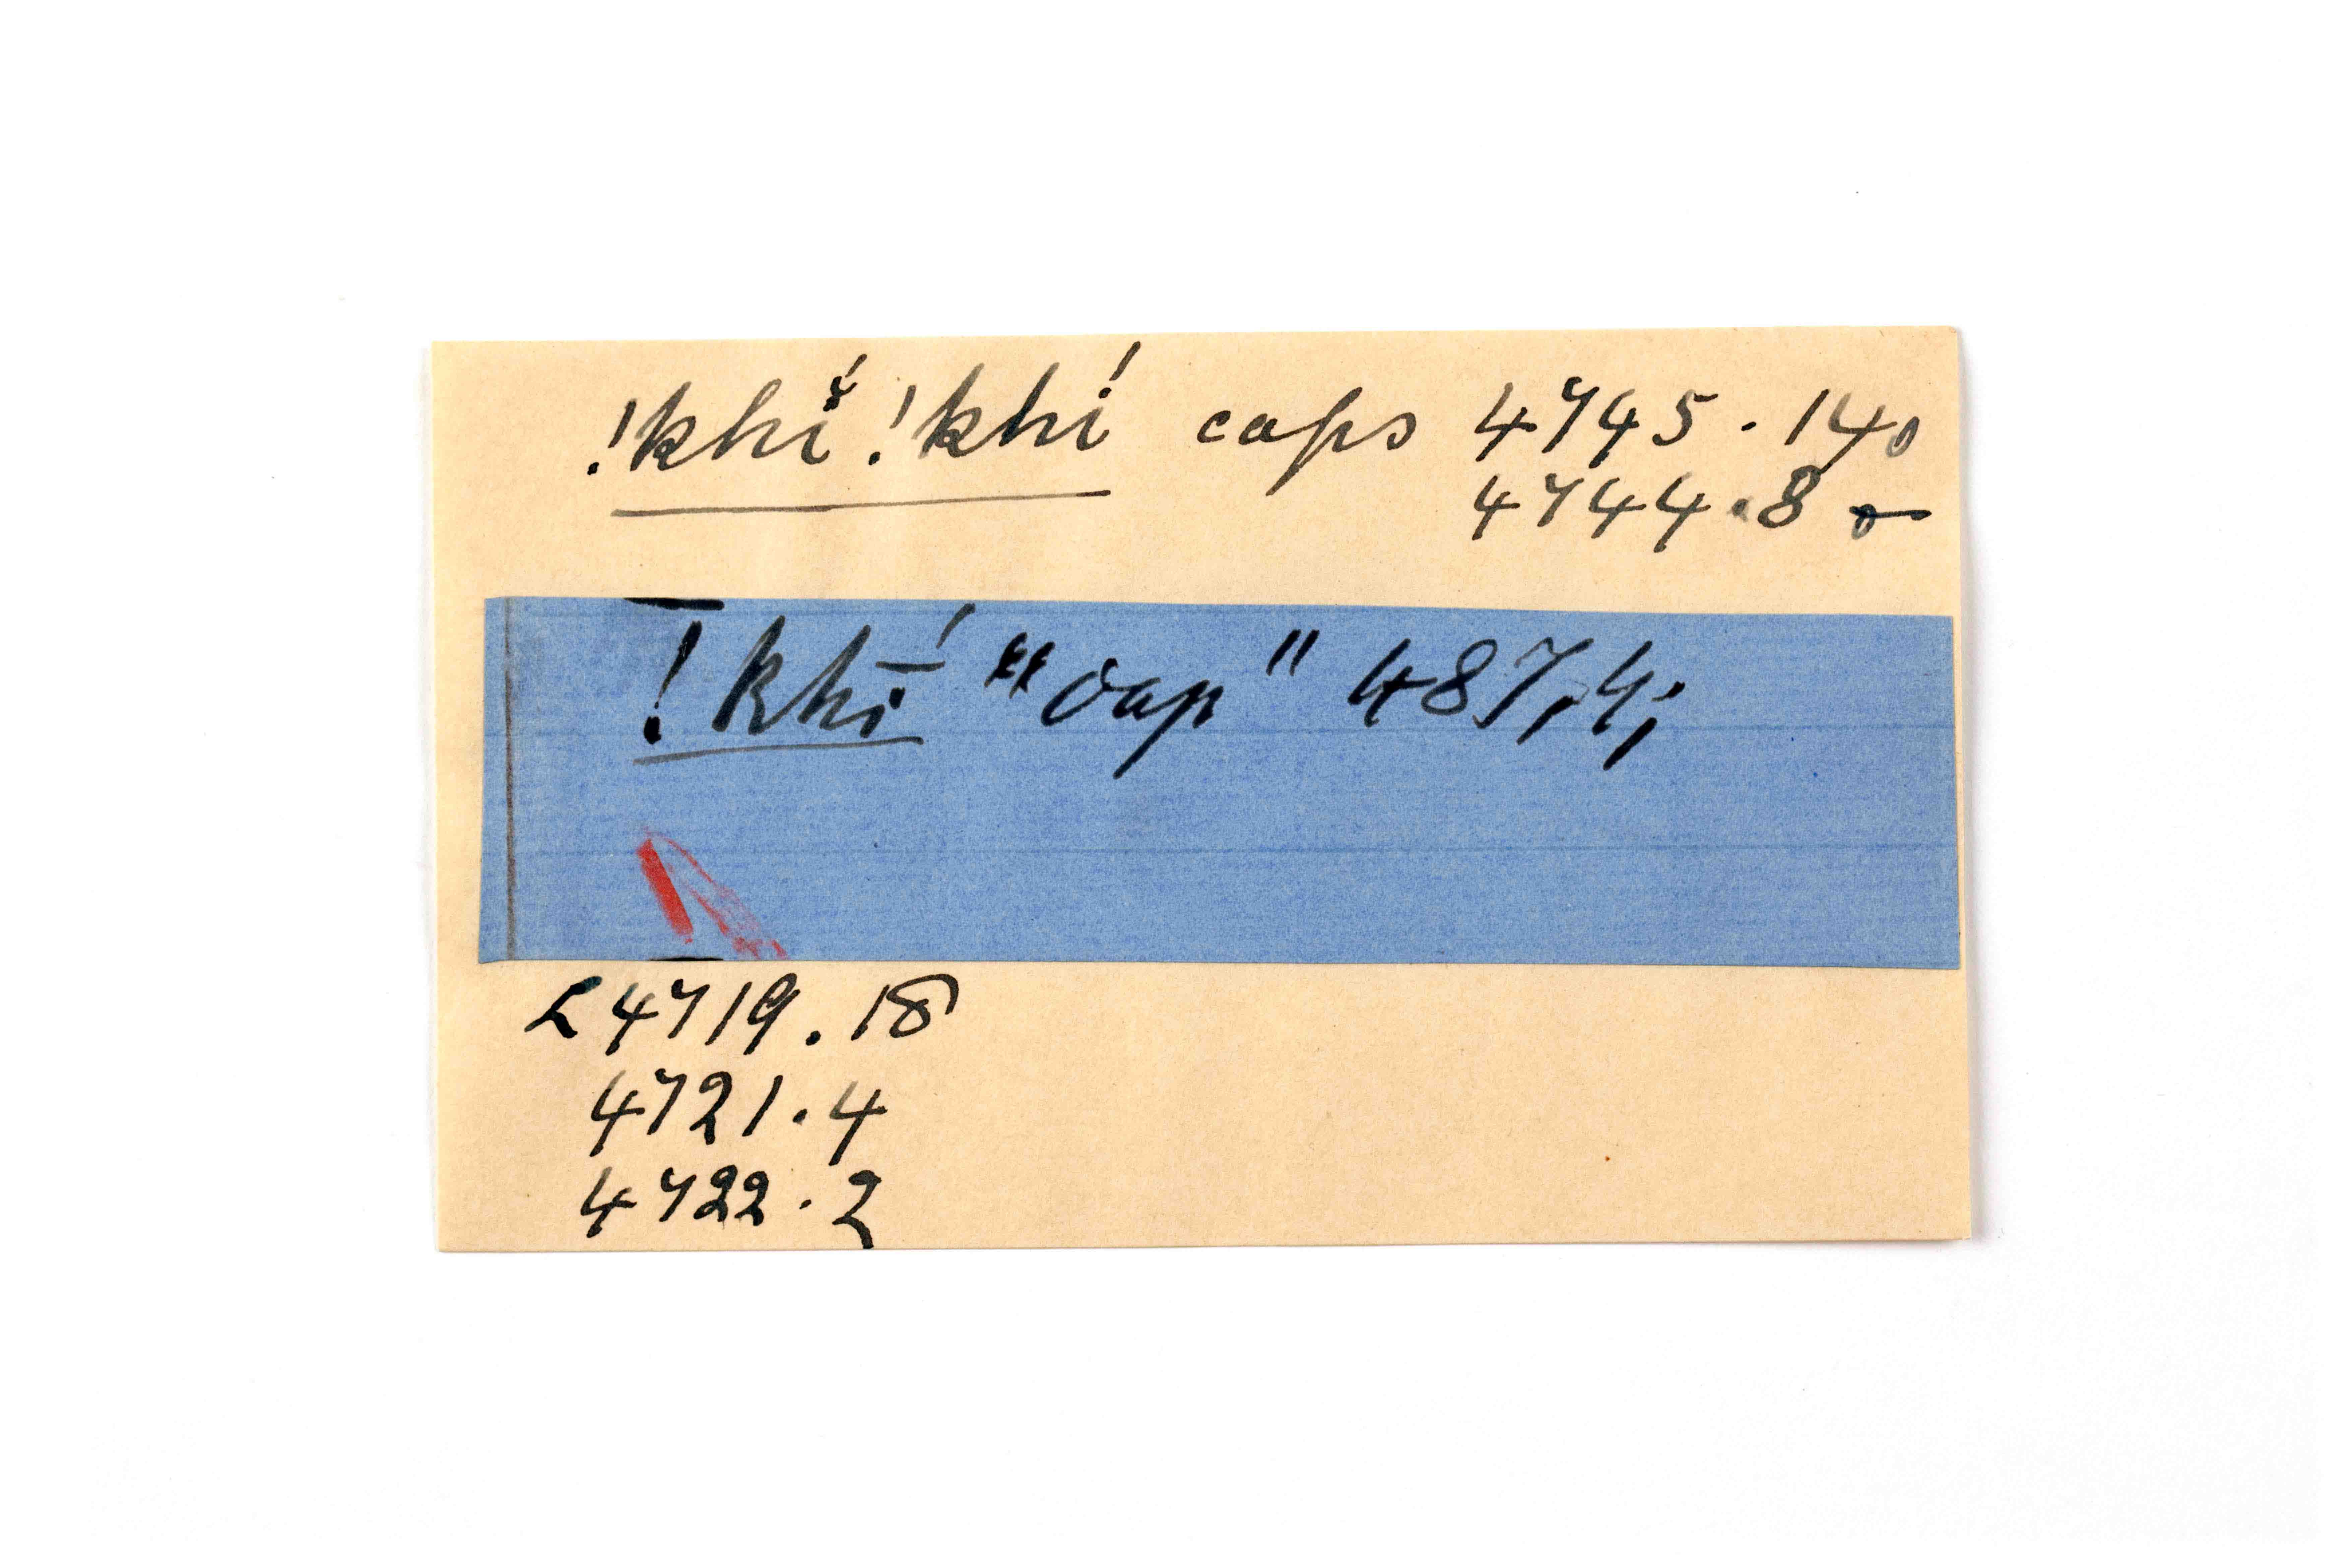 !khĭ́!khí caps 4745.14
4744.8
!khī́ "cap" 487,4;
L4719.18
4721.4
4722.2